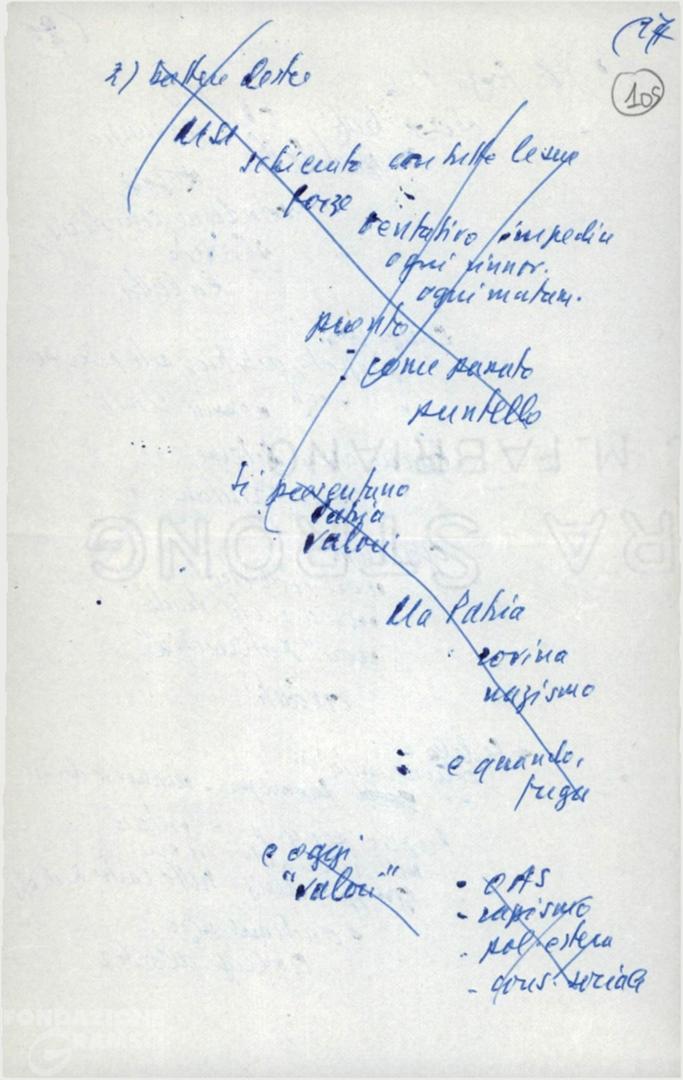 97
105
2) battere destre
MSI
schierato con tutte le sue
forze
tentativo impedire
ogni rinnov.
ogni matur.
pronto
- come
puntello
si presentano
Patria
valori
Ma Patria
rovina
nazismo
e quando,
fuga
e oggi
"valori"
- OAS
- razismo
- pol. estera
- cons. sociale
FABRIANO
RA STRONG
FONDAZIONE
GRAMSCI